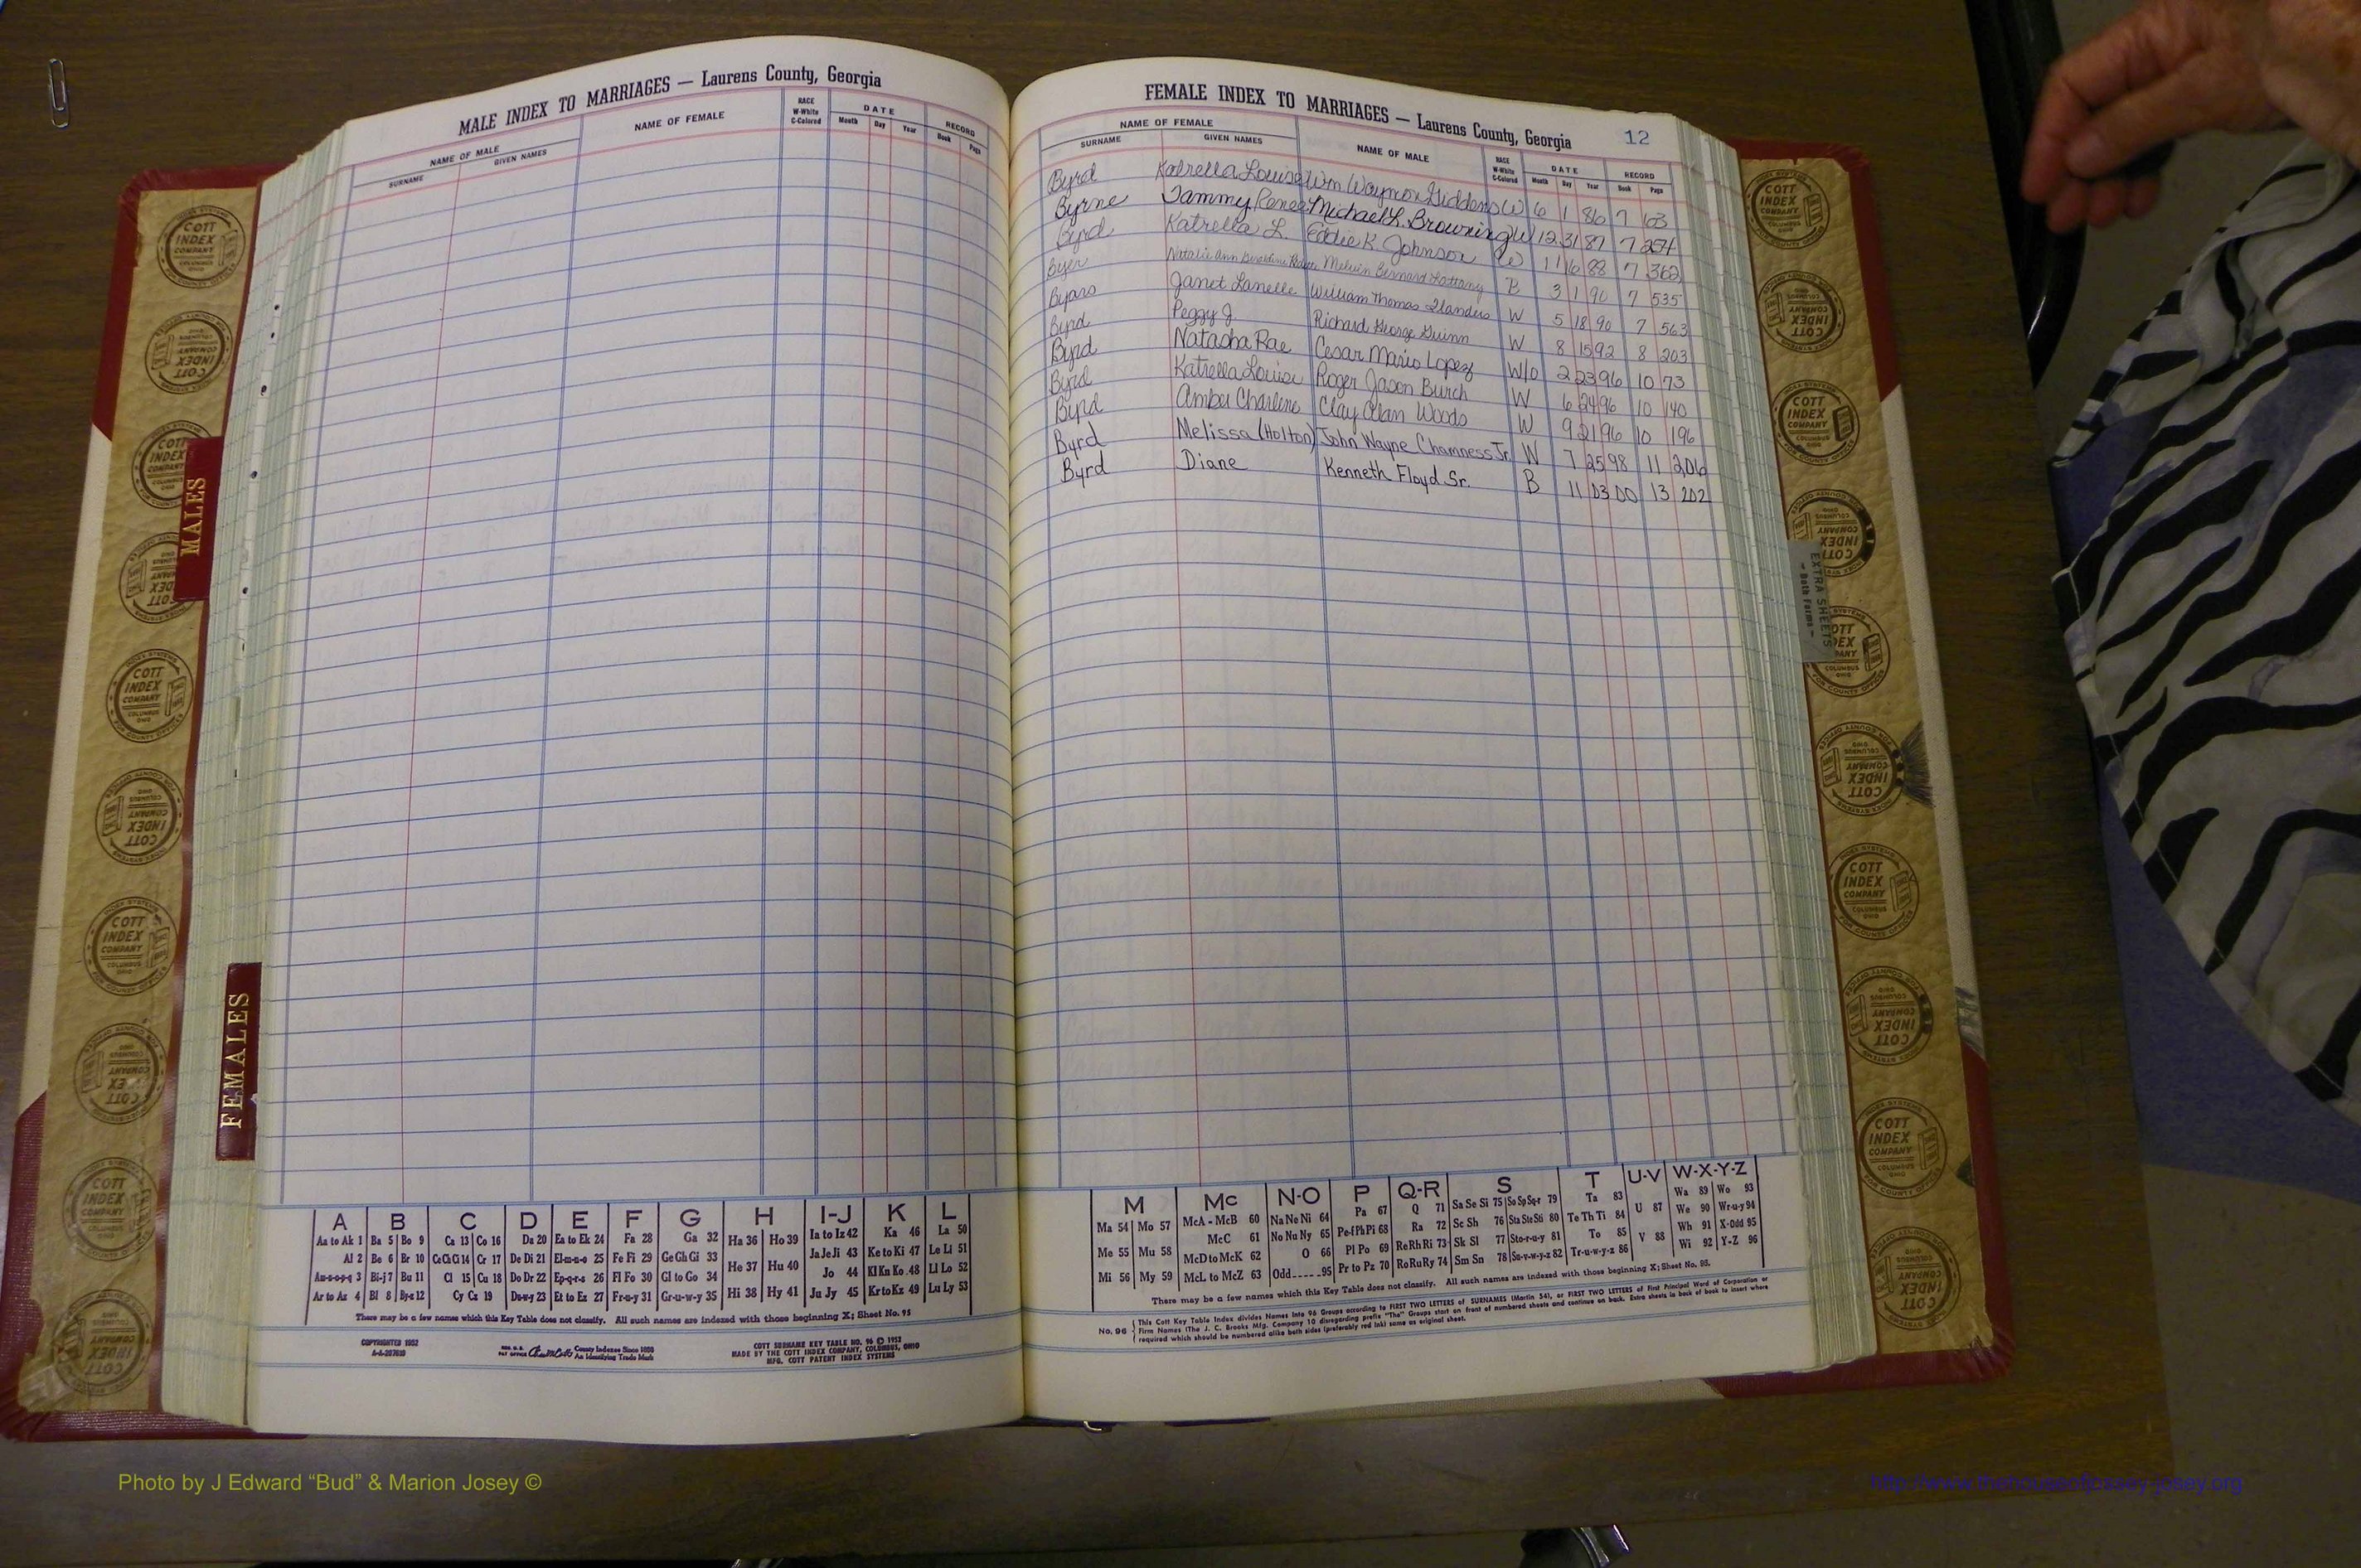 MALE INDEX TO MARRIAGES — Laurens County, Georgia
NAME OF MALE
SURNAME GIVEN NAMES
NAME OF FEMALE
RACE W-White C-Colored
DATE
Month Day Year
RECORD
Book Page
FEMALE INDEX TO MARRIAGES — Laurens County, Georgia 12
NAME OF FEMALE
SURNAME GIVEN NAMES
NAME OF MALE
RACE W-White C-Colored
DATE
Month Day Year
RECORD
Book Page
Byrd Katrella Louise Wm. Waymon Giddens W 6 1 86 7 103
Byrne Tammy Renee Michael L. Browning W 12 31 87 7 254
Byrd Katrella L. Eddie K. Johnson W 11 6 88 7 362
Byer Natalie Ann Melvin Bernard B 3 1 90 7 535
Byars Janet Lanelle William Thomas W 5 18 90 7 563
Byrd Peggy J. Richard George Guinn W 8 15 92 8 203
Byrd Natasha Rae Cesar Mario Lopez W/O 2 23 96 10 73
Byrd Katrella Louise Roger Jason Burch W 6 24 96 10 140
Byrd Amber Charlene Clay Alan Woods W 9 21 96 10 196
Byrd Melissa (Holton) John Wayne Chamness Jr. W 7 25 98 11 206
Byrd Diane Kenneth Floyd Sr. B 11 03 00 13 202
MALES
FEMALES
EXTRA SHEETS
– Both Forms –
COTT INDEX COMPANY COLUMBUS OHIO
INDEX SYSTEMS FOR COUNTY OFFICES
A B C D E F G H I-J K L
Aa to Ak 1 Ba 5 Bo 9 Ca 13 Co 16 Da 20 Ea to Ek 24 Fa 28 Ga 32 Ha 36 Ho 39 Ia to Iz 42 Ka 46 La 50
Al 2 Be 6 Br 10 Ce Ch Ci 14 Cr 17 De Di 21 El-m-n-o 25 Fe Fi 29 Ge Gh Gi 33 He 37 Hu 40 Ja Je Ji 43 Ke to Ki 47 Le Li 51
Am-n-o-p-q 3 Bi-j 7 Bu 11 Cl 15 Cu 18 Do Dr 22 Ep-q-r-s 26 Fl Fo 30 Gl to Go 34 Hi 38 Hy 41 Jo 44 Kl Kn Ko 48 Ll Lo 52
Ar to Az 4 Bl 8 By-z 12 Cy Cz 19 Du-w-y 23 Et to Ez 27 Fr-u-y 31 Gr-u-w-y 35 Ju Jy 45 Kr to Kz 49 Lu Ly 53
There may be a few names which this Key Table does not classify. All such names are indexed with those beginning X; Sheet No. 95
COPYRIGHTED 1952
A-A-207610
REG. U.S. PAT OFFICE County Indexes Since 1888 An Identifying Trade Mark
COTT SURNAME KEY TABLE NO. 96 © 1952
MADE BY THE COTT INDEX COMPANY, COLUMBUS, OHIO
MFG. COTT PATENT INDEX SYSTEMS
M Mc N-O P Q-R S T U-V W-X-Y-Z
Ma 54 Mo 57 McA - McB 60 Na Ne Ni 64 Pa 67 Q 71 Sa Se Si 75 So Sp Sq-r 79 Ta 83 U 87 Wa 89 Wo 93
Me 55 Mu 58 McC 61 No Nu Ny 65 Pe-f Ph Pi 68 Ra 72 Sc Sh 76 Sta Ste Sti 80 Te Th Ti 84 V 88 We 90 Wr-u-y 94
Mi 56 My 59 McD to McK 62 O 66 Pl Po 69 Re Rh Ri 73 Sk Sl 77 Sto-r-u-y 81 To 85 Wh 91 X-Odd 95
McL to McZ 63 Odd-----95 Pr to Pz 70 Ro Ru Ry 74 Sm Sn 78 Su-v-w-y-z 82 Tr-u-w-y-z 86 Wi 92 Y-Z 96
There may be a few names which this Key Table does not classify. All such names are indexed with those beginning X; Sheet No. 95.
No. 96 This Cott Key Table Index divides Names into 96 Groups according to FIRST TWO LETTERS of SURNAMES (Martin 54), or FIRST TWO LETTERS of First Principal Word of Corporation or
Firm Names (The J. C. Brooks Mfg. Company 10 disregarding prefix "The") Groups start on front of numbered sheets and continue on back. Extra sheets in back of book to insert where
required which should be numbered alike both sides (preferably red ink) same as original sheet.
Photo by J Edward “Bud” & Marion Josey ©
http://www.thehouseofjossey-josey.org